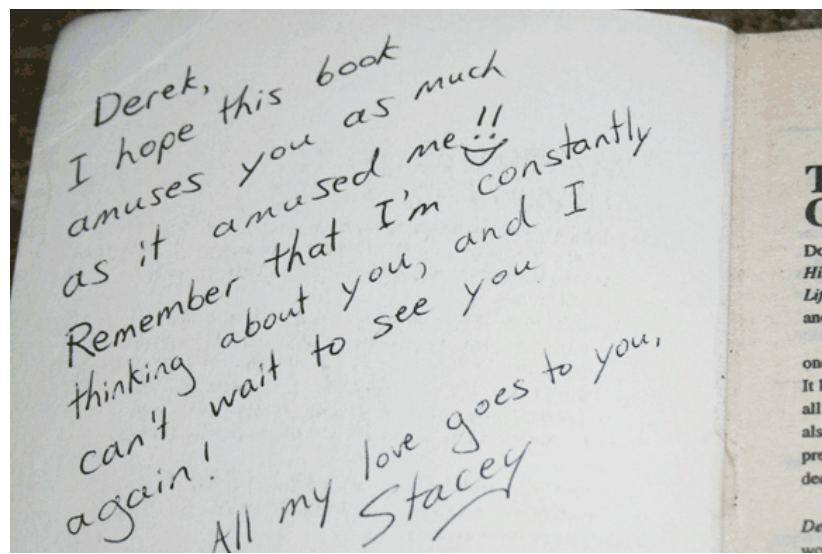 Derek,
I hope this book
amuses you as much
as it amused me!!
Remember that I'm constantly
thinking about you, and I
can't wait to see you
again!
All my love goes to you,
Stacey
T
Do
Hi
Lif
and
one
It
all
als
pre
dec
De
wo